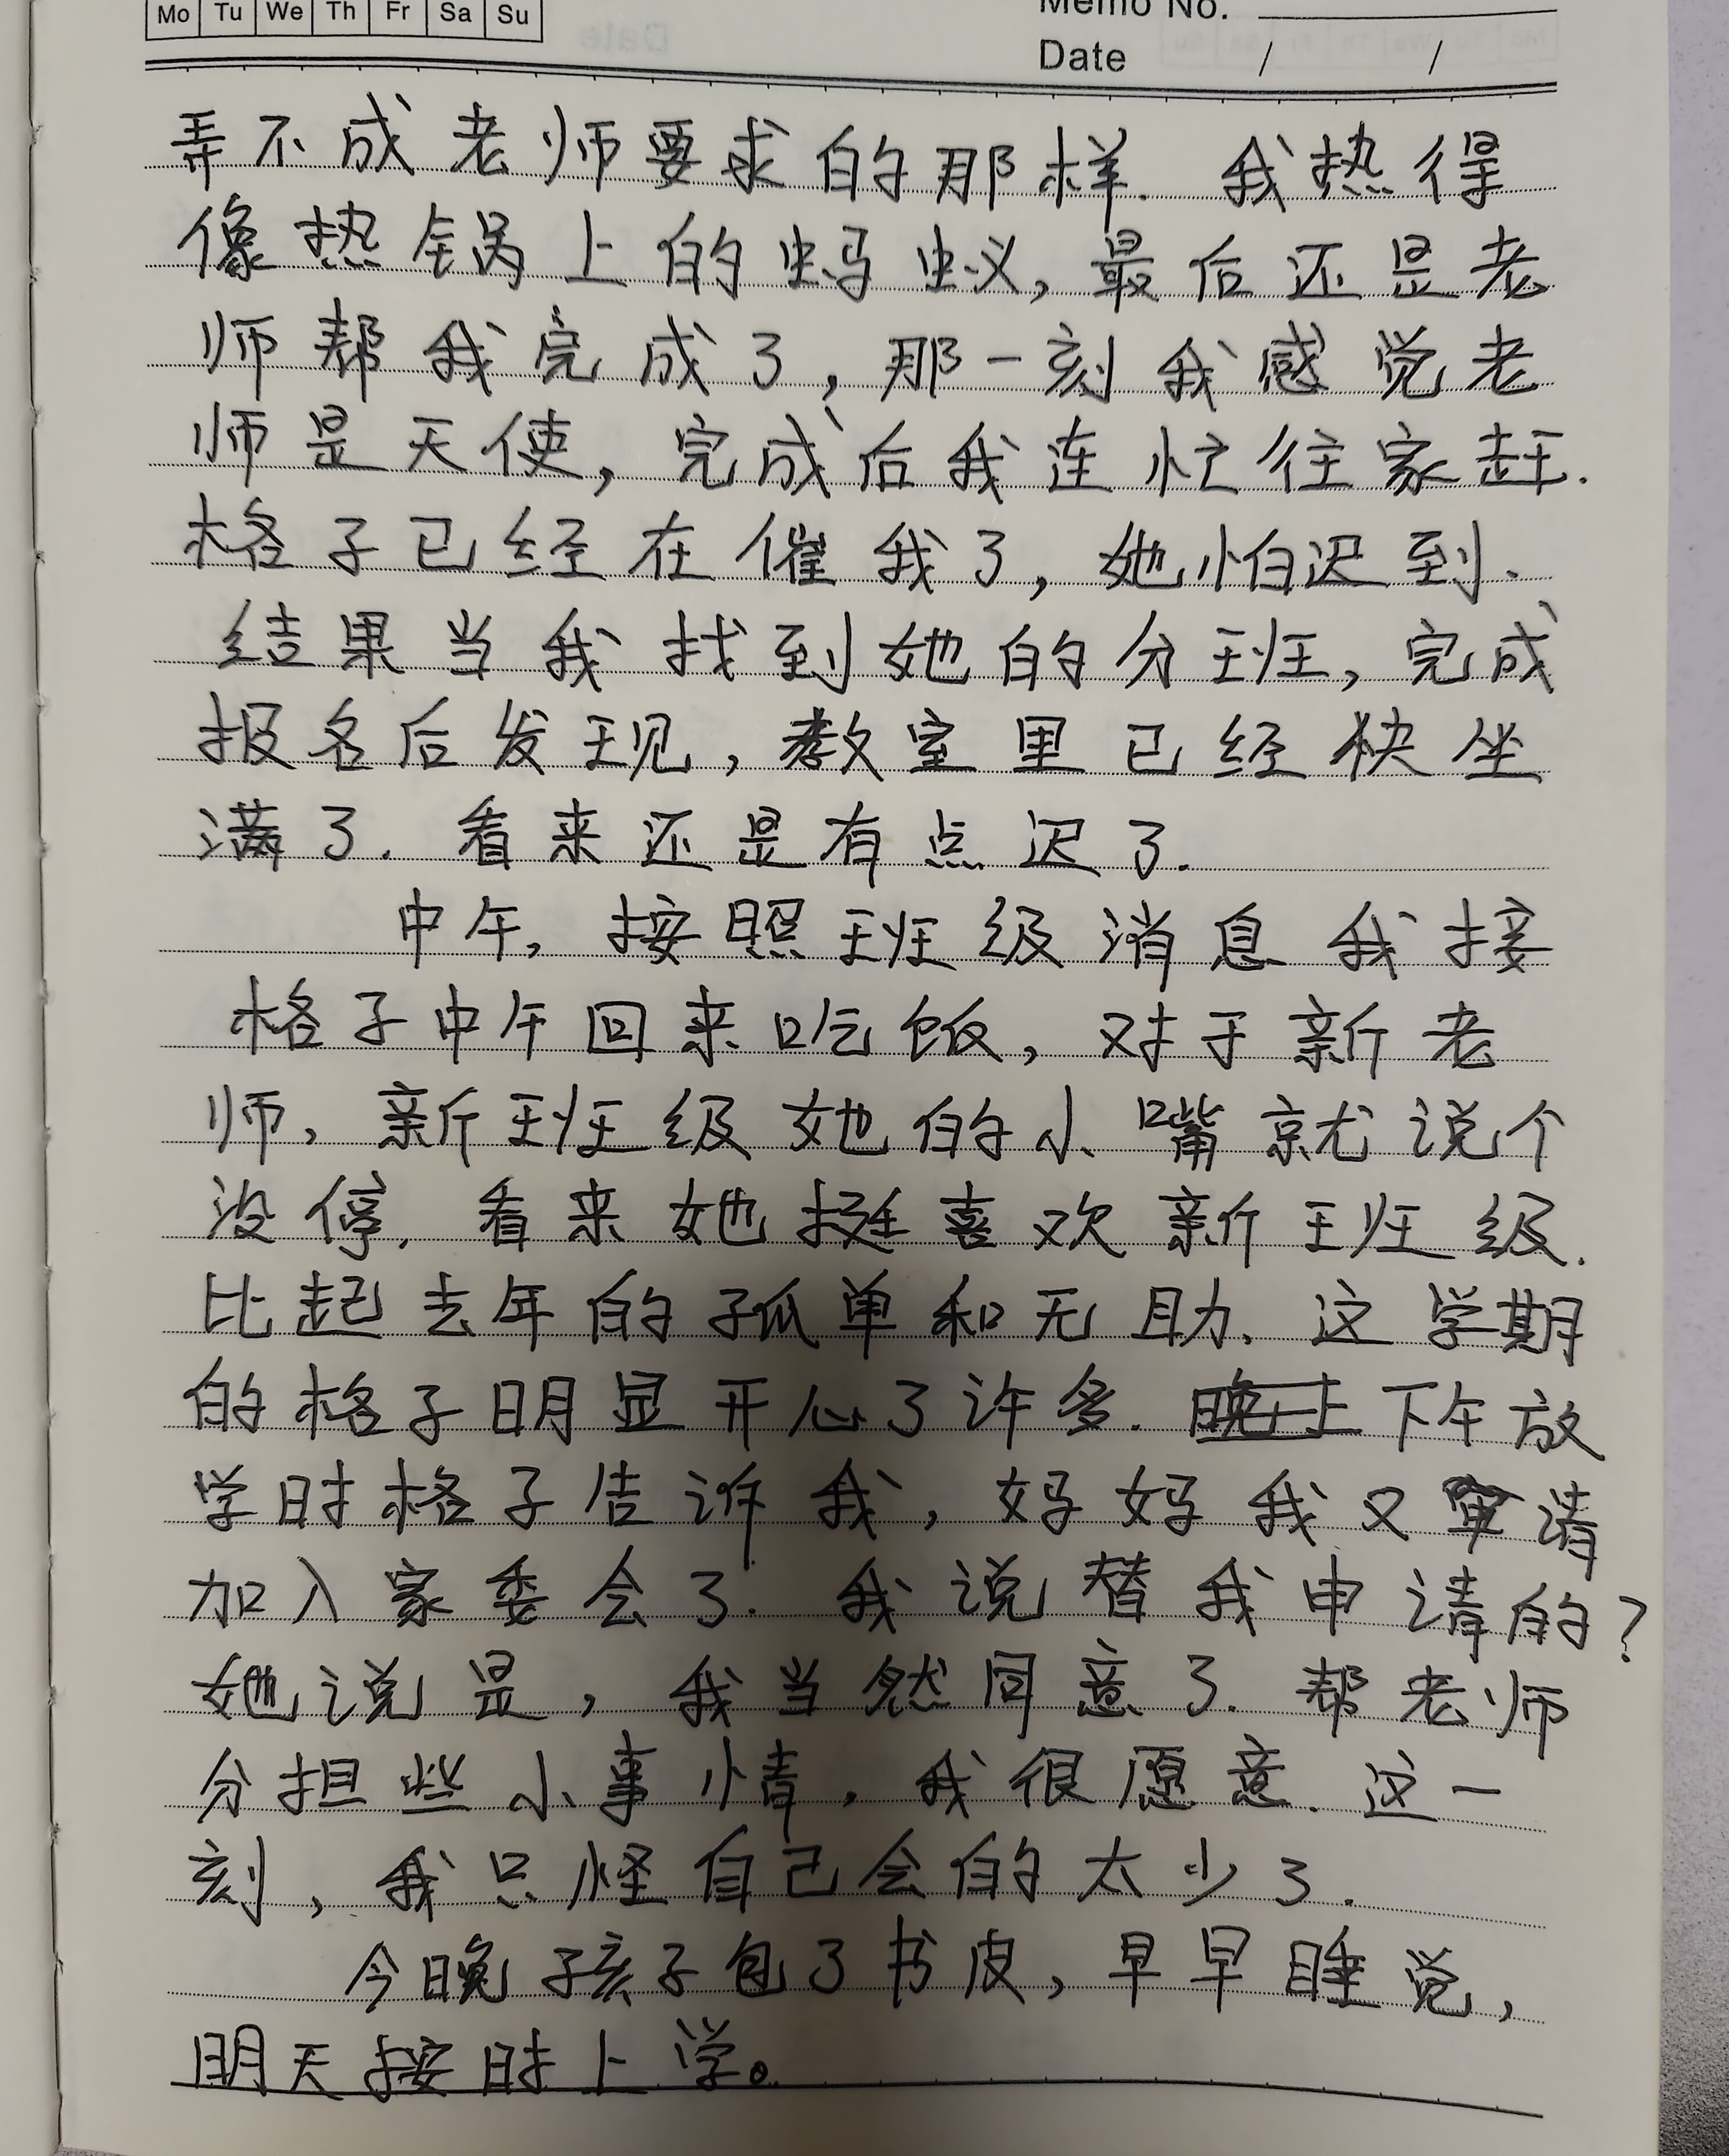 Mo Tu We Th Fr Sa Su
Memo No.
Date / /
弄不成老师要求的那样.我热得
像热锅上的蚂蚁,最后还是老
师帮我完成了,那一刻我感觉老
师是天使,完成后我连忙往家赶.
格子已经在催我了,她怕迟到、
结果当我找到她的分班,完成
报名后发现,教室里已经快坐
满了.看来还是有点迟了.
中午,按照班级消息我接
格子中午回来吃饭,对于新老
师,新班级她的小嘴就说个
没停.看来她挺喜欢新班级.
比起去年的孤单和无助.这学期
的格子明显开心了许多.晚上下午放
学时格子告诉我,妈妈我又申请
加入家委会了.我说替我申请的?
她说是,我当然同意了.帮老师
分担些小事情,我很愿意.这一
刻,我只怪自己会的太少了.
今晚孩子包了书皮,早早睡觉,
明天按时上学。